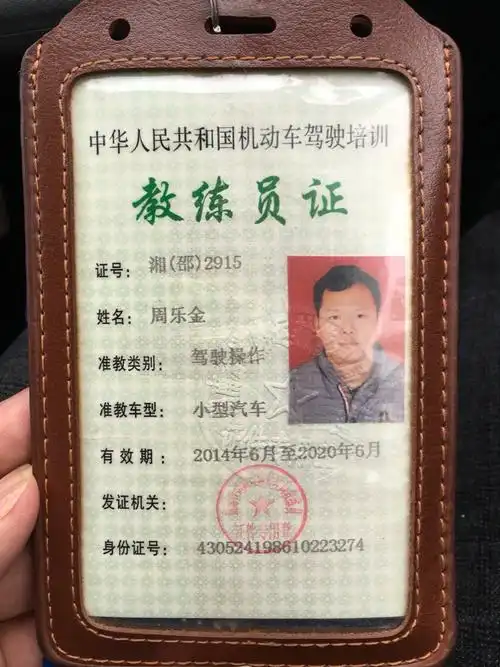 中华人民共和国机动车驾驶培训
教练员证
证号：湘(邵)2915
姓名：周乐金
准教类别：驾驶操作
准教车型：小型汽车
有效期：2014年6月至2020年6月
发证机关：
身份证号：430524198610223274